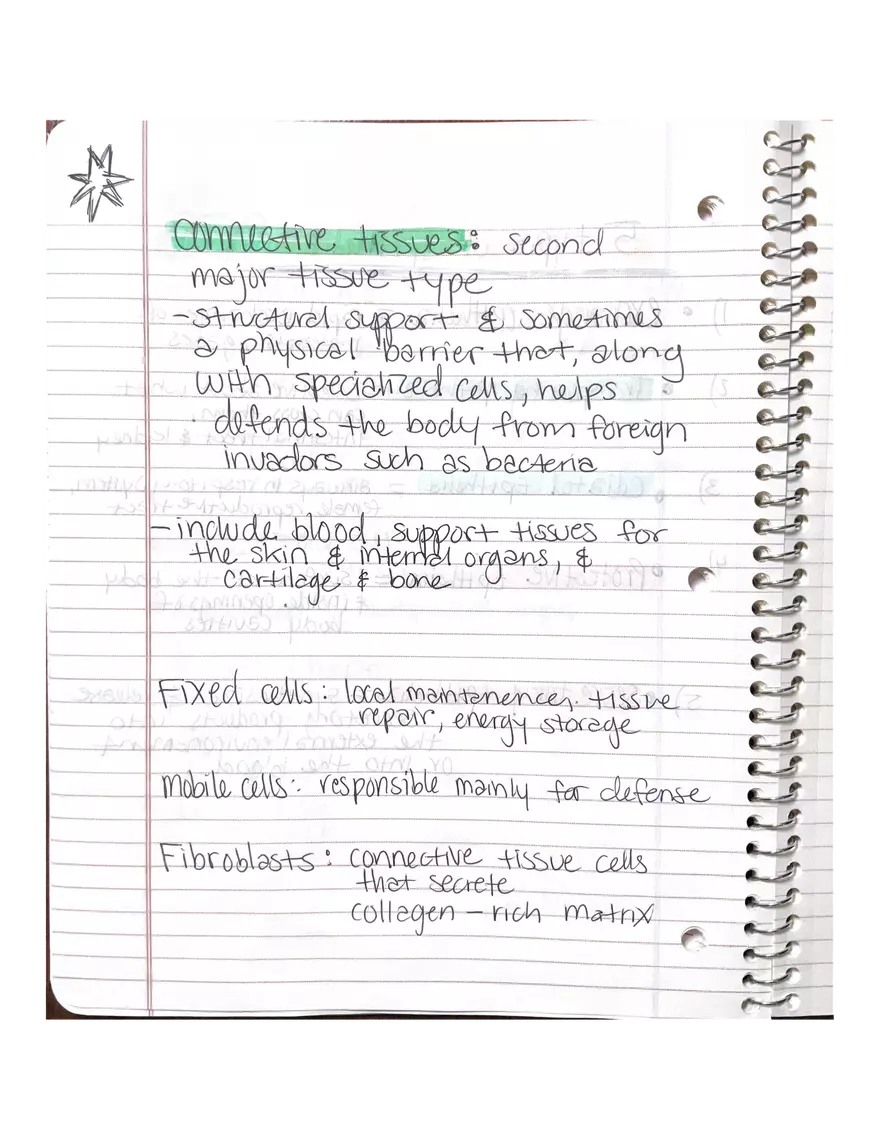 connective tissues: second
major tissue type
- structural support & sometimes
a physical barrier that, along
with specialized cells, helps
defends the body from foreign
invadors such as bacteria
- include blood, support tissues for
the skin & internal organs, &
cartilage & bone
Fixed cells: local maintanence, tissue
repair, energy storage
mobile cells: responsible mainly for defense
Fibroblasts: connective tissue cells
that secrete
collagen - rich matrix